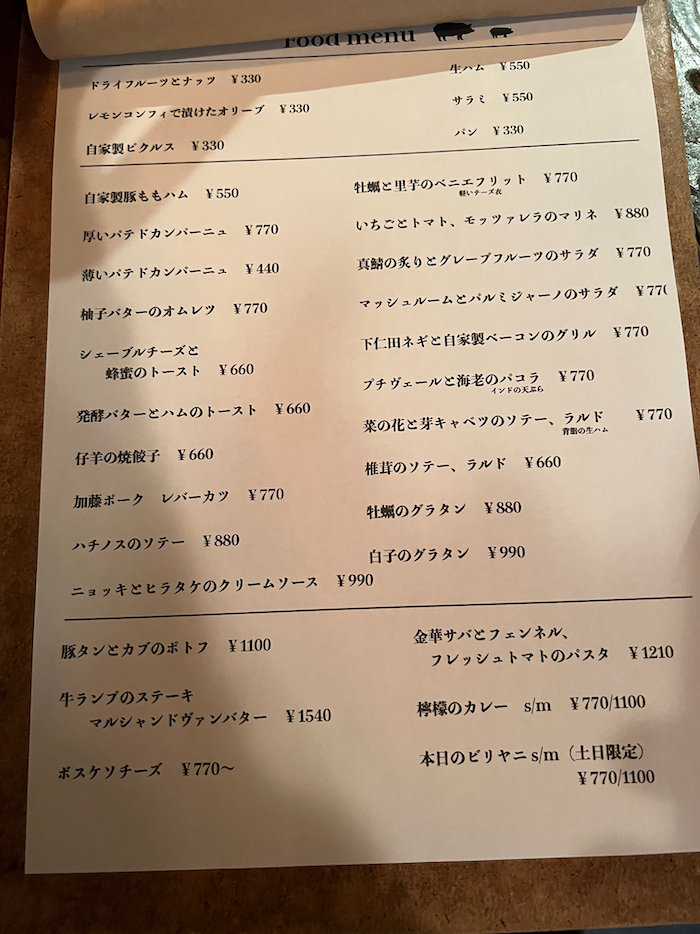 Food menu
ドライフルーツとナッツ ¥330
レモンコンフィで漬けたオリーブ ¥330
自家製ピクルス ¥330
生ハム ¥550
サラミ ¥550
パン ¥330
自家製豚ももハム ¥550
厚いパテドカンパーニュ ¥770
薄いパテドカンパーニュ ¥440
柚子バターのオムレツ ¥770
シェーブルチーズと
蜂蜜のトースト ¥660
発酵バターとハムのトースト ¥660
仔羊の焼餃子 ¥660
加藤ポーク レバーカツ ¥770
ハチノスのソテー ¥880
ニョッキとヒラタケのクリームソース ¥990
牡蠣と里芋のベニエフリット ¥770
軽いチーズ衣
いちごとトマト、モッツァレラのマリネ ¥880
真鯖の炙りとグレープフルーツのサラダ ¥770
マッシュルームとパルミジャーノのサラダ ¥770
下仁田ネギと自家製ベーコンのグリル ¥770
プチヴェールと海老のパコラ ¥770
インドの天ぷら
菜の花と芽キャベツのソテー、ラルド ¥770
背脂の生ハム
椎茸のソテー、ラルド ¥660
牡蠣のグラタン ¥880
白子のグラタン ¥990
豚タンとカブのポトフ ¥1100
牛ランプのステーキ
マルシャンドヴァンバター ¥1540
ボスケソチーズ ¥770〜
金華サバとフェンネル、
フレッシュトマトのパスタ ¥1210
檸檬のカレー s/m ¥770/1100
本日のビリヤニ s/m（土日限定）
¥770/1100